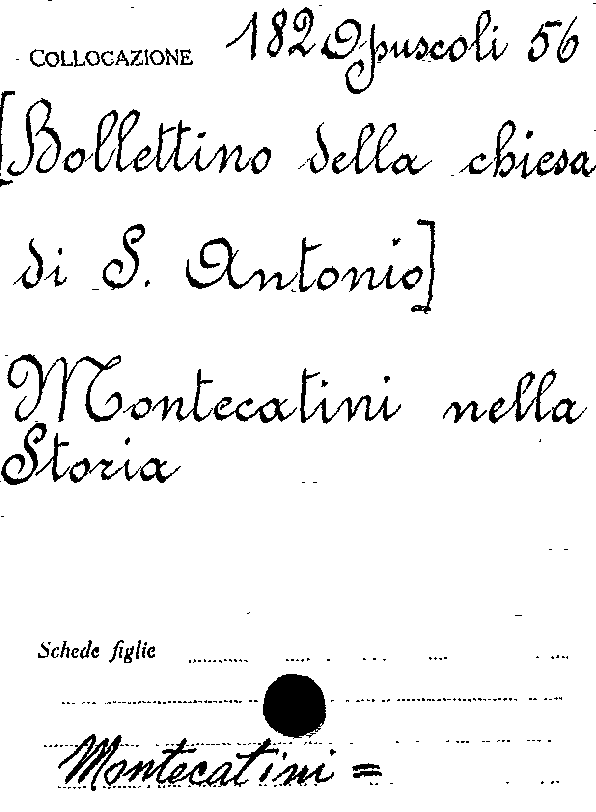 COLLOCAZIONE 182 Opuscoli 56
[Bollettino della chiesa
di S. Antonio]
Montecatini nella
Storia
Schede figlie
Montecatini =